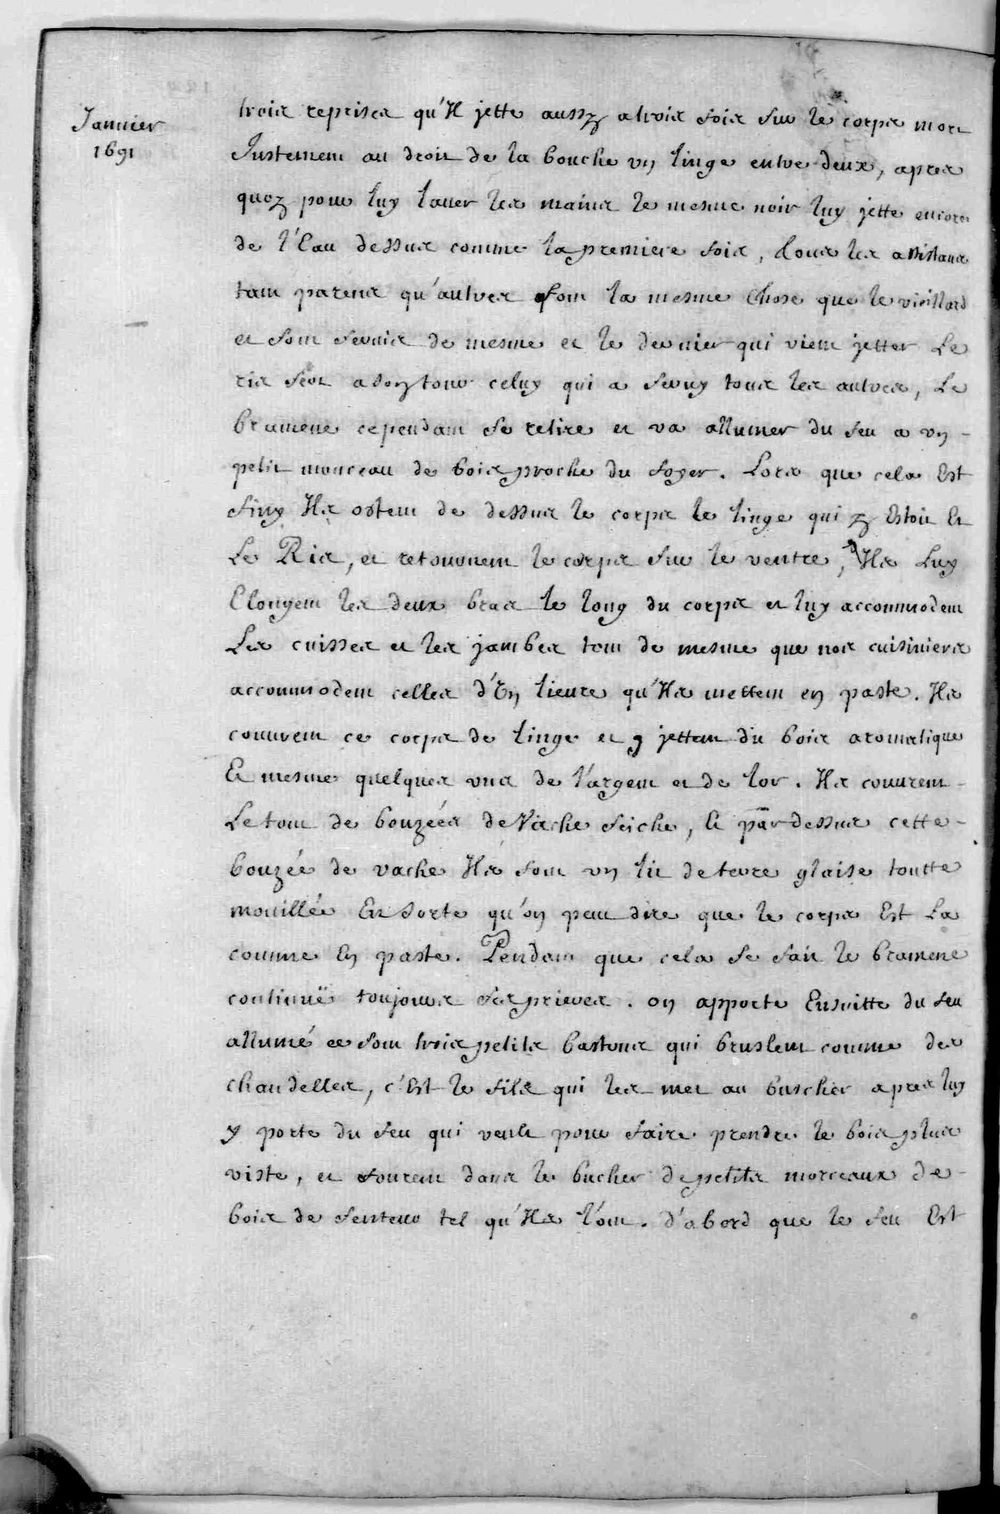 Janvier
1691
trois reprises qu'Il jette aussy a trois fois sur le corps mort
Justement au droit de la bouche un linge entre deux, apres
quoy pour luy laver les mains le mesme noir luy jette encore
de l'Eau dessus comme la premiere fois, tous les assistans
tant parens qu'autres font la mesme chose que le vieillard
et sont servis de mesme et le dernier qui vient jetter Le
ris sert a son tour celuy qui a servy tous les autres, Le
bramene cependant se retire et va allumer du feu a un
petit monceau de bois proche du foyer. Lors que cela Est
finy Ils ostent de dessus le corps le linge qui y Estoit Et
Le Ris, et retournent le corps sur le ventre, Ils Luy
Elongent les deux bras le long du corps et luy accommodent
Les cuisses et les jambes tout de mesme que nos cuisiniers
accommodent celles d'Un lievre qu'Ils mettent en paste. Ils
couvrent ce corps de linge et y jettent du bois aromatique
Et mesme quelques uns de l'argent et de l'or. Ils couvrent
Le tout de bouzéés de Vache seiche, Et par dessus cette
bouzée de vache Ils font un lit de terre glaise toutte
mouillée En sorte qu'on peut dire que le corps Est La
comme En paste. Pendant que cela se fait le bramene
continuë toujours ses prieres. on apporte Ensuitte du feu
allumé ce sont trois petits bastons qui bruslent comme des
chandelles, c'Est le fils qui les met au buscher apres luy
y porte du feu qui veult pour faire prendre le bois plus
viste, et fourent dans le bucher de petits morceaux de
bois de senteur tel qu'Ils l'ont. d'abord que le feu Est